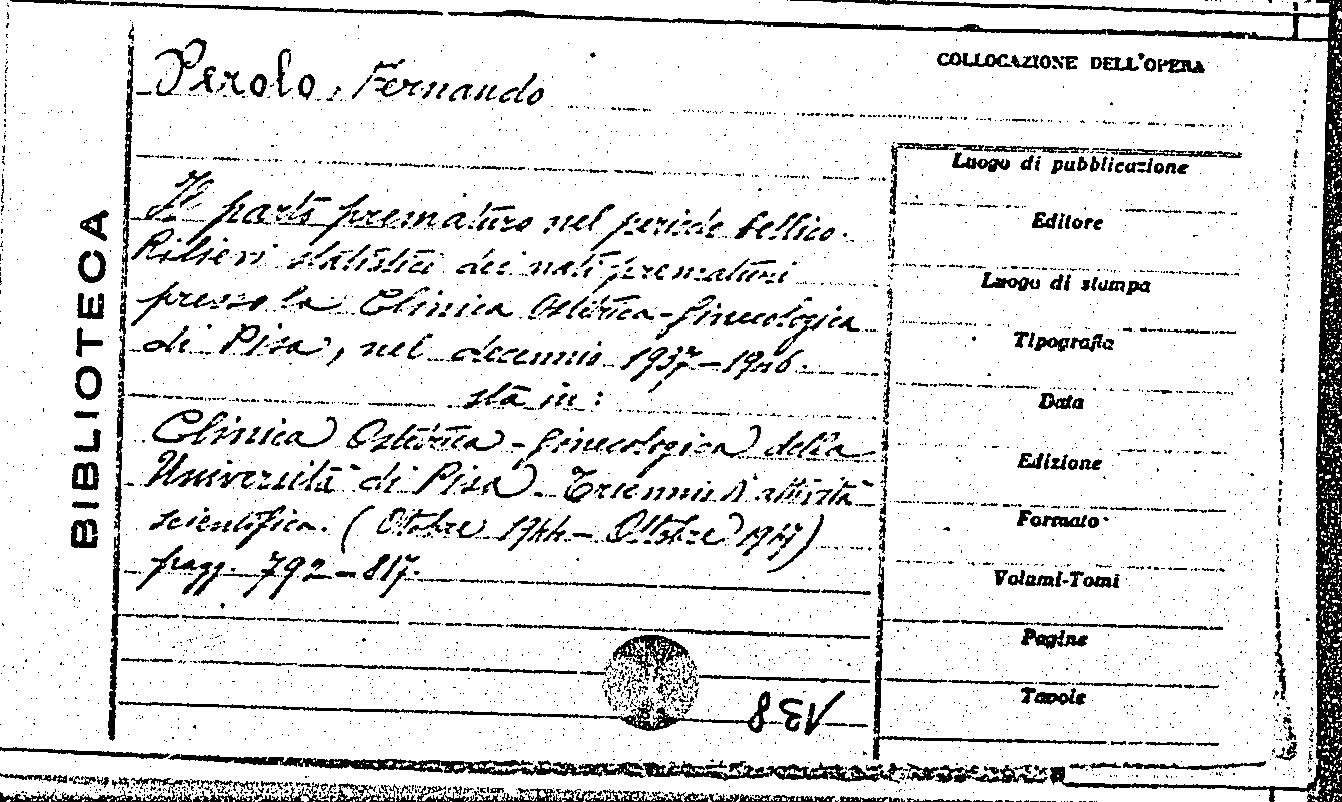 BIBLIOTECA
Perolo, Fernando
COLLOCAZIONE DELL'OPERA
Il parto prematuro nel periodo bellico.
Rilievi statistici dei nati prematuri
presso la Clinica Ostetrica-Ginecologica
di Pisa, nel decennio 1937-1946.
sta in:
Clinica Ostetrica-Ginecologica della
Università di Pisa. Triennio d'attività
scientifica. (Ottobre 1944- Ottobre 1947)
pagg. 792-817.
Luogo di pubblicazione
Editore
Luogo di stampa
Tipografia
Data
Edizione
Formato
Volumi-Tomi
Pagine
Tavole